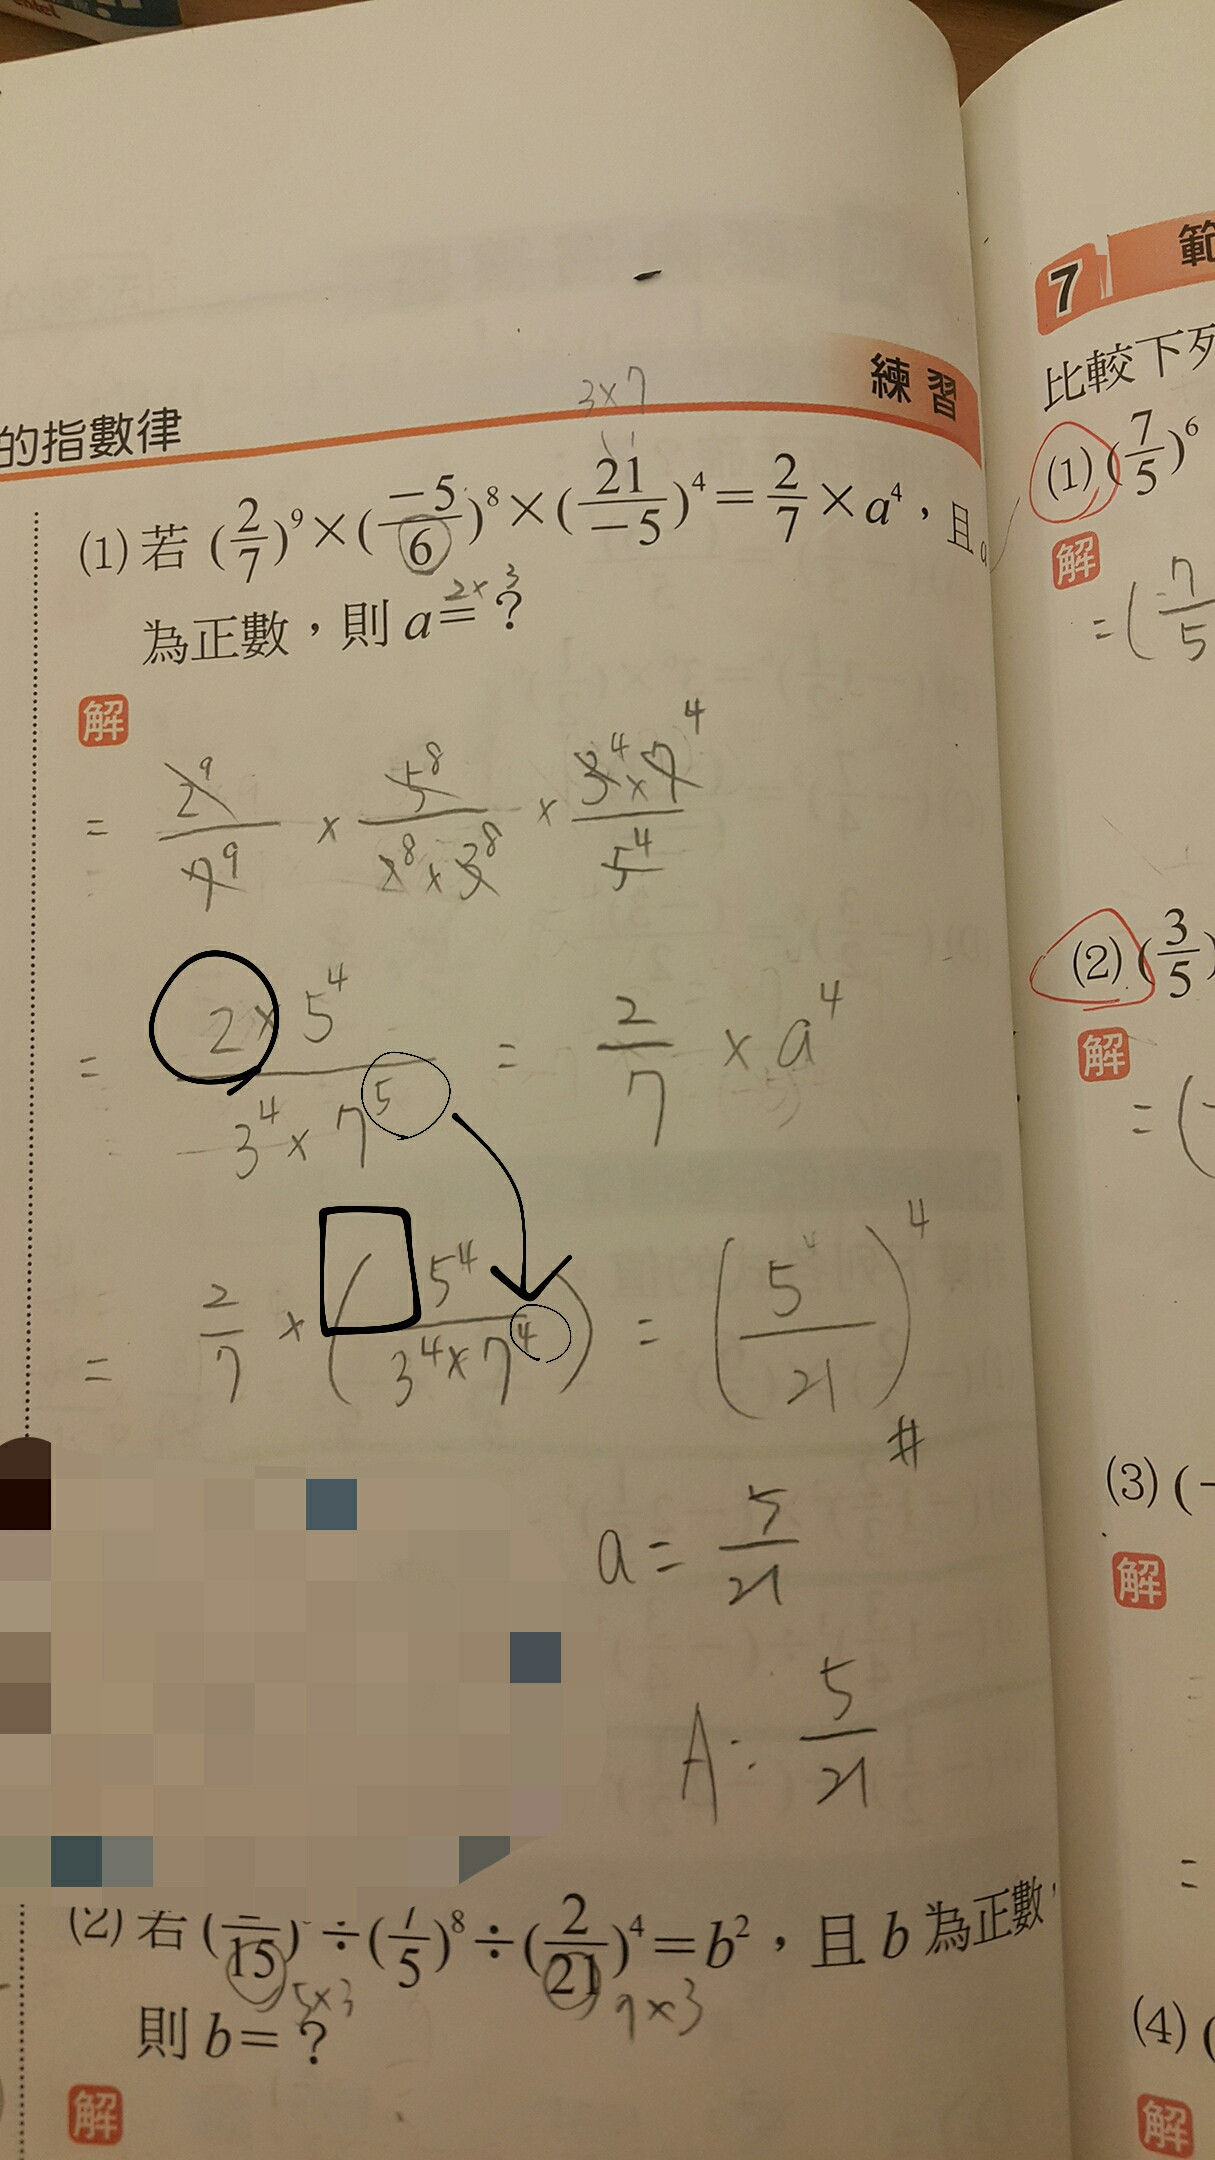 練習
3×7
的指數律
(1) 若 (2/7)⁹×(-5/6)⁸×(21/-5)⁴=2/7×a⁴，且a
2×3
為正數，則 a=?
解
= 2⁹/7⁹ × 5⁸/2⁸×3⁸ × 3⁴×7⁴/5⁴
= 2×5⁴/3⁴×7⁵ = 2/7 × a⁴
= 2/7 × (5⁴/3⁴×7⁴) = (5⁴/21)⁴ #
a = 5/21
A: 5/21
(2) 若 (/15) ÷(7/5)⁸÷(2/21)⁴=b²，且 b 為正數，
5×3 7×3
則 b=?
解
7 範
比較下列
(1) (7/5)⁶
解
= (7/5
(2) (3/5)
解
= (
(3) (-
解
=
(4) (
解